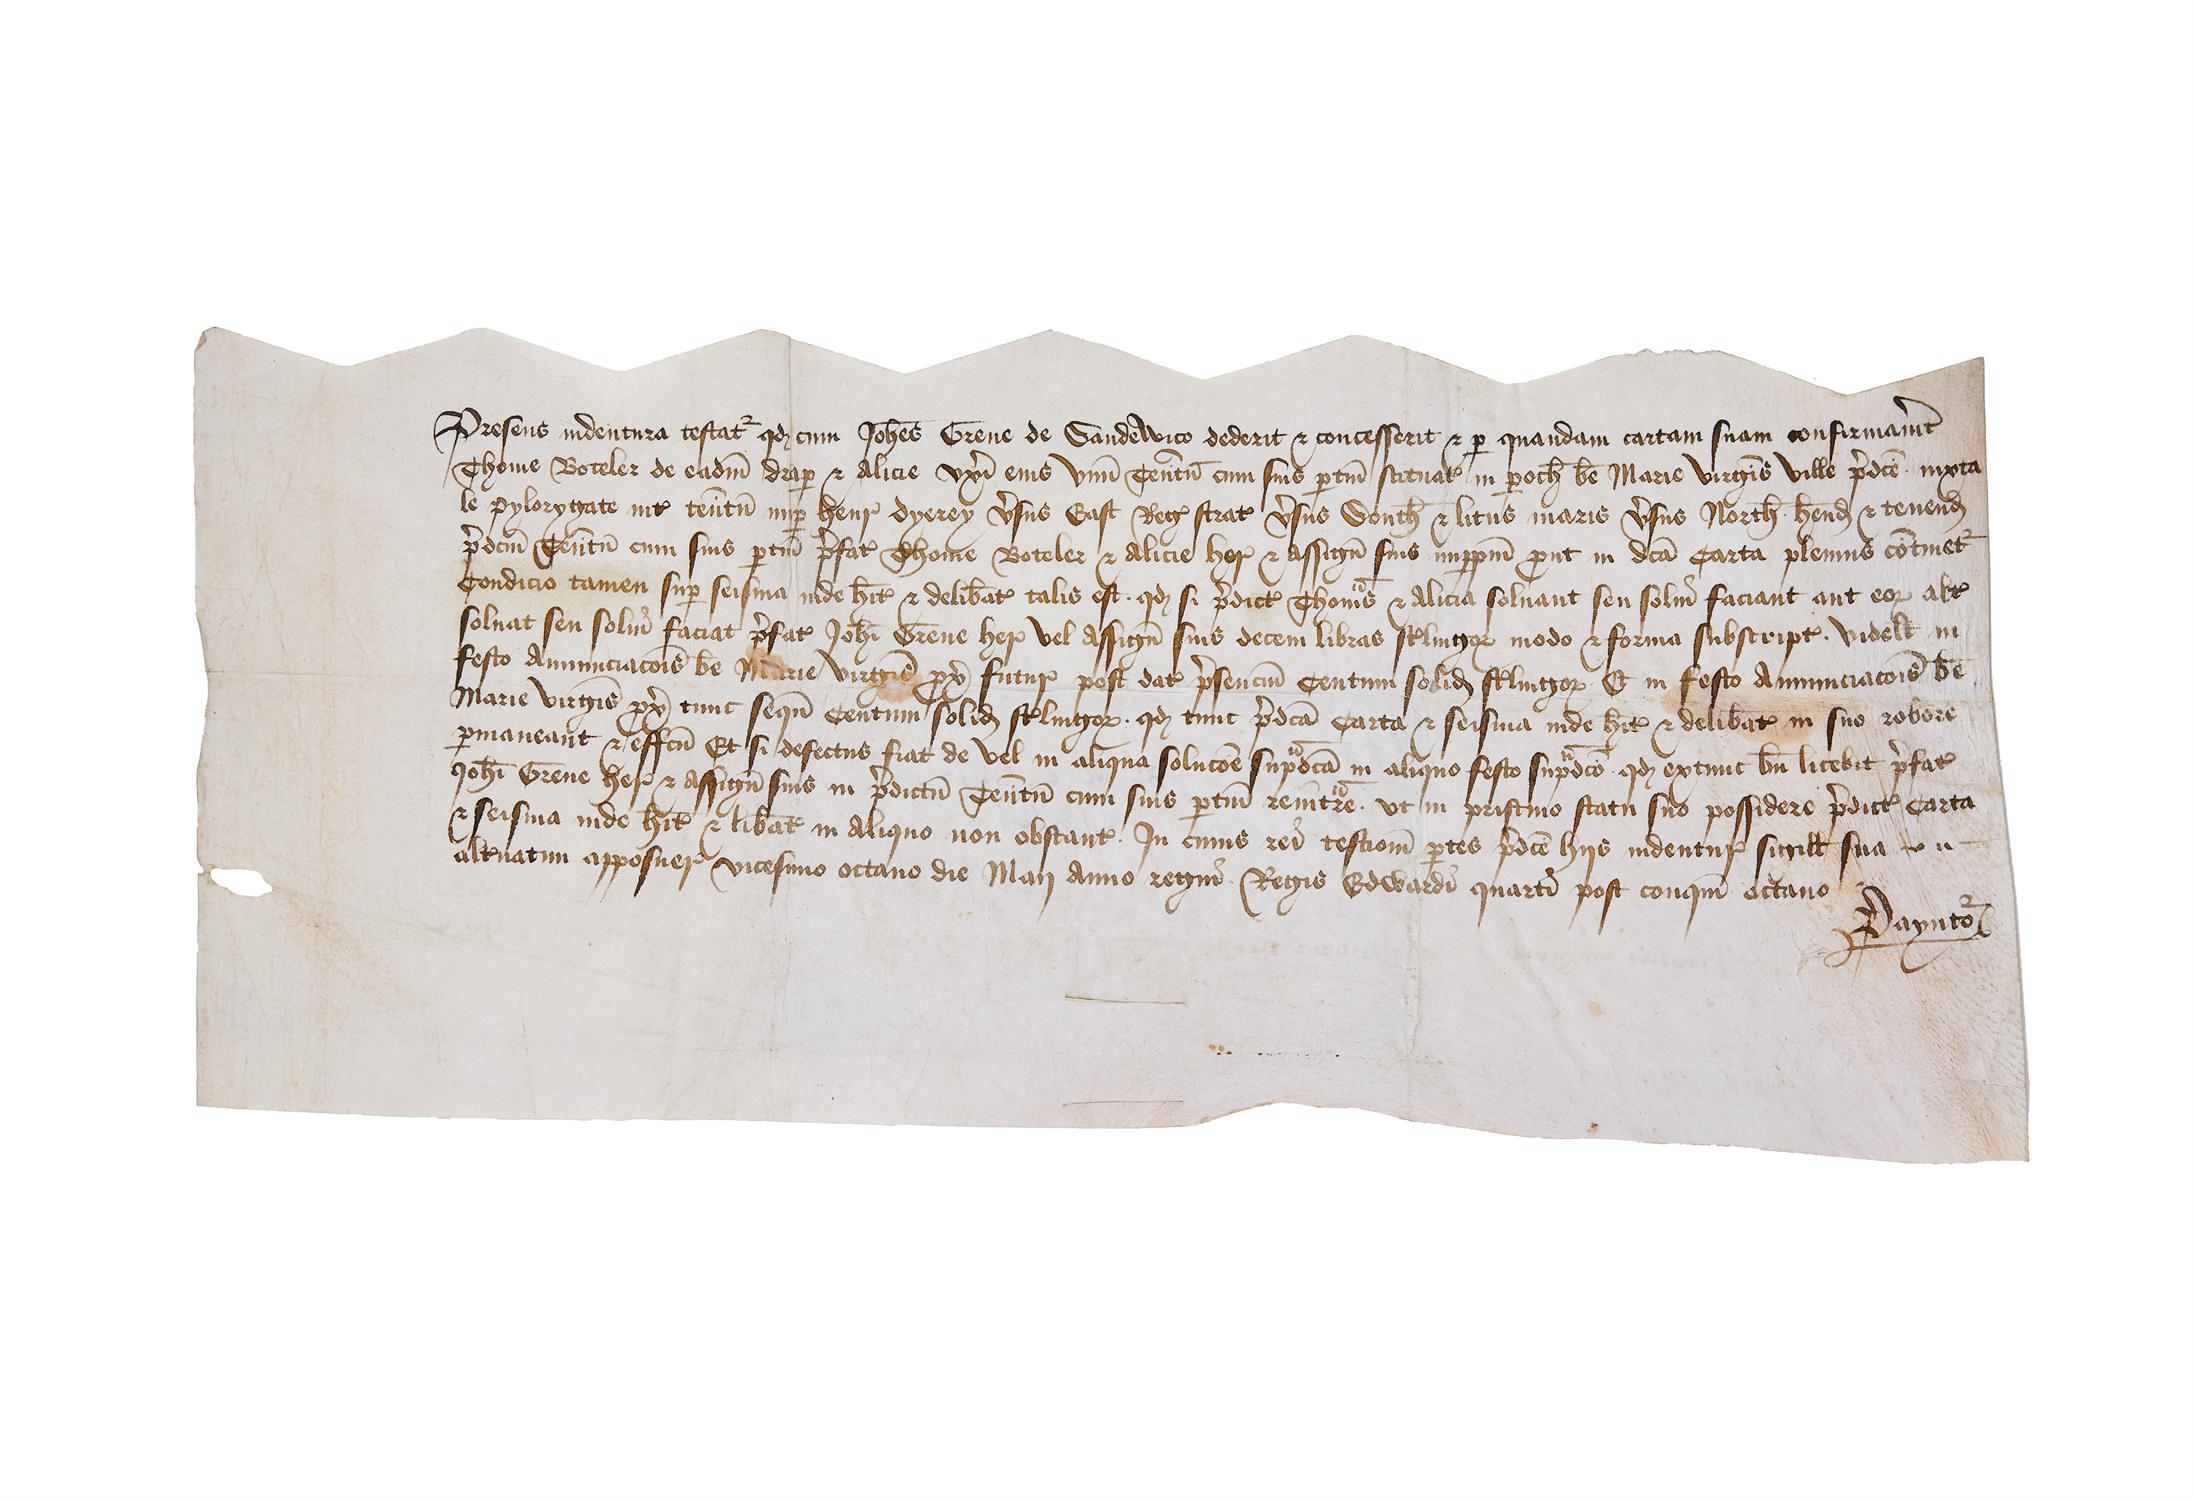 Presens indentura testat᷑ qd cum Joh̅es Grene de Sandewico dederit ⁊ concesserit ⁊ p quandam cartam suam confirmau̓it
Thome Boteler de ead̅m drap ⁊ Alicie vx̓i eius vnu̅ Ten̅tu̅ cum suis ptin̅ scituat᷑ in poch̅ b̅e Marie virgi̅s ville p̓dc̅e iuxta
le pylorygate int᷑ ten̅tu̅ nup henr᷑ dyerey v̓sus East Reg᷑ strat᷑ v̓sus South ⁊ litus maris v̓sus North. h̅end ⁊ tenend
p̓dc̅m Ten̅tu̅ cum suis ptin̅ p̓fat᷑ Thome Boteler ⁊ Alicie her᷑ ⁊ assign̅ suis imppm̅ put in dc̅a Carta plenius co̅tinet᷑
Condicio tamen sup seisina inde h̅it᷑ ⁊ delib̅at᷑ talis est. qd si p̓dict᷑ Thom̅s ⁊ Alicia soluant seu solui̓ faciant aut eor᷑ alt᷑
soluat seu solui̓ faciat p̓fat᷑ Joh̅i Grene her᷑ vel Assign̅ suis decem libras st᷑lingor᷑ modo ⁊ forma subscript᷑. videl̅t in
festo Annunciaco̅is b̅e Marie virgi̅s px̓ futur᷑ post dat᷑ p̓senciu̅ Centum solid st᷑lingor᷑ Et in festo Annunciaco̅is b̅e
Marie virgi̅s px̓ tunc sequ̅ Centum solid st᷑lingor᷑. qd tunc p̓dc̅a Carta ⁊ seisina inde h̅it᷑ ⁊ delib̅at᷑ in suo robore
pmaneant ⁊ effc̅u Et si defectus fiat de vel in aliqua soluco̅e sup̓dc̅a in aliquo festo sup̓dc̅o. qd extunc bn̅ licebit p̓fat᷑
Joh̅i Grene her᷑ ⁊ assign̅ suis in p̓dictu̅ Ten̅tu̅ cum suis ptin̅ rein̅tre̅. vt in pristino statu suo possidere p̓dict᷑ Carta
⁊ seisina inde h̅it᷑ ⁊ lib̅at᷑ in Aliquo non obstant᷑. In cuius rei̓ testi̅om̅ ptes p̓dc̅e hijs indentur᷑ sigill̅ sua
alt᷑natim apposuer᷑ vicesimo octauo die Maij Anno regni̓ Regis Edwardi̓ quarti̓ post conqm̅ octauo
Paynto᷑